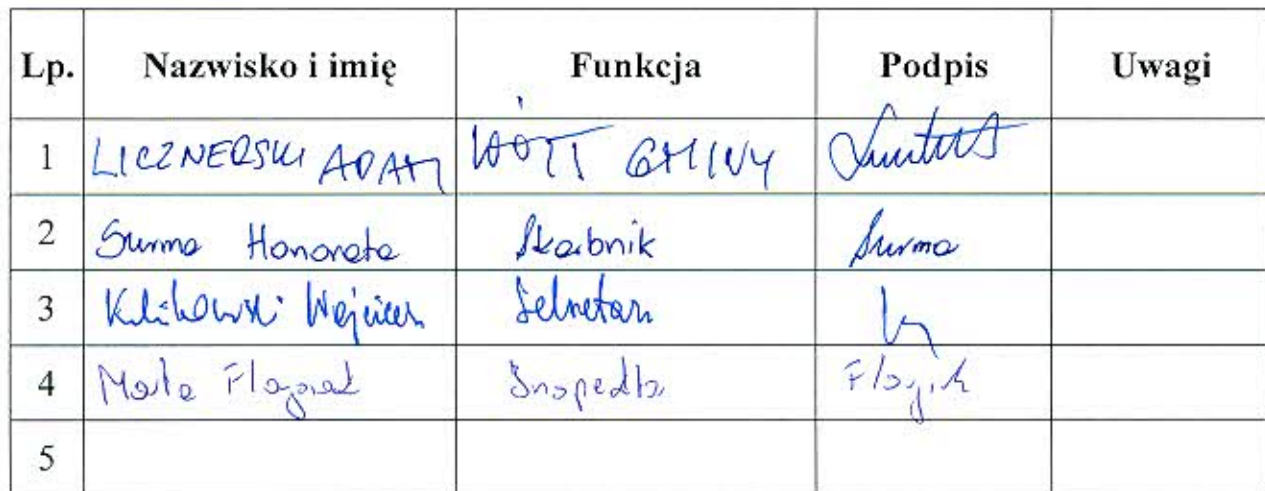 Lp. Nazwisko i imię Funkcja Podpis Uwagi
1 LICZNERSKI ADAM WÓJT GMINY
2 Surma Honorata Skarbnik Surma
3 Wojciech Sekretarz
4 Marta Inspektor
5